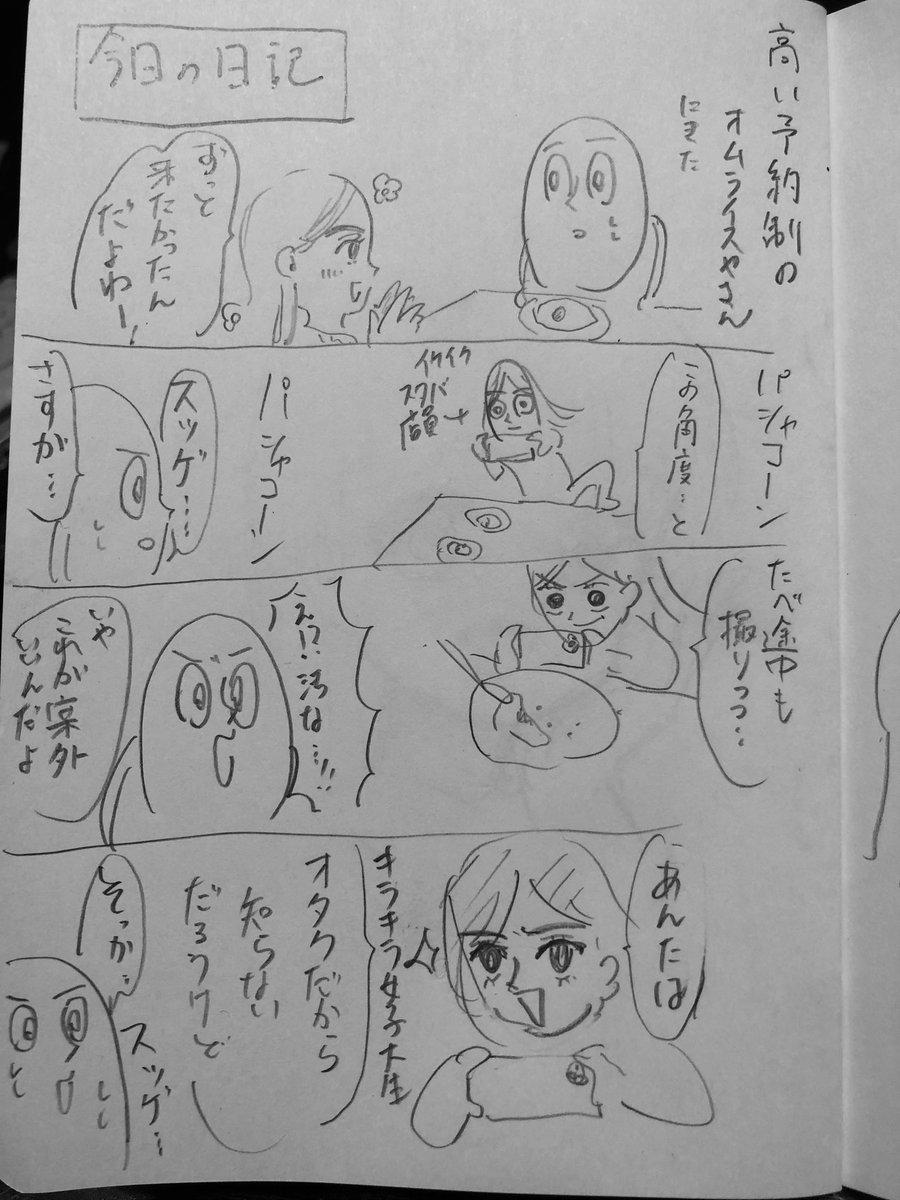 今日の日記
高い予約制の
オムライスやさん
にきた
ずっと
来たかったん
だよねー!
パシャコーン
この角度…と
イケイケ
スタバ
店員
パシャコーン
スッゲ……
さすが…
たべ途中も
撮りつつ…
えっ!?汚な…!!
いや
これが案外
いいんだよ
あんたは
キラキラ女子大生
オタクだから
知らない
だろうけど
そっか…
スッゲ…